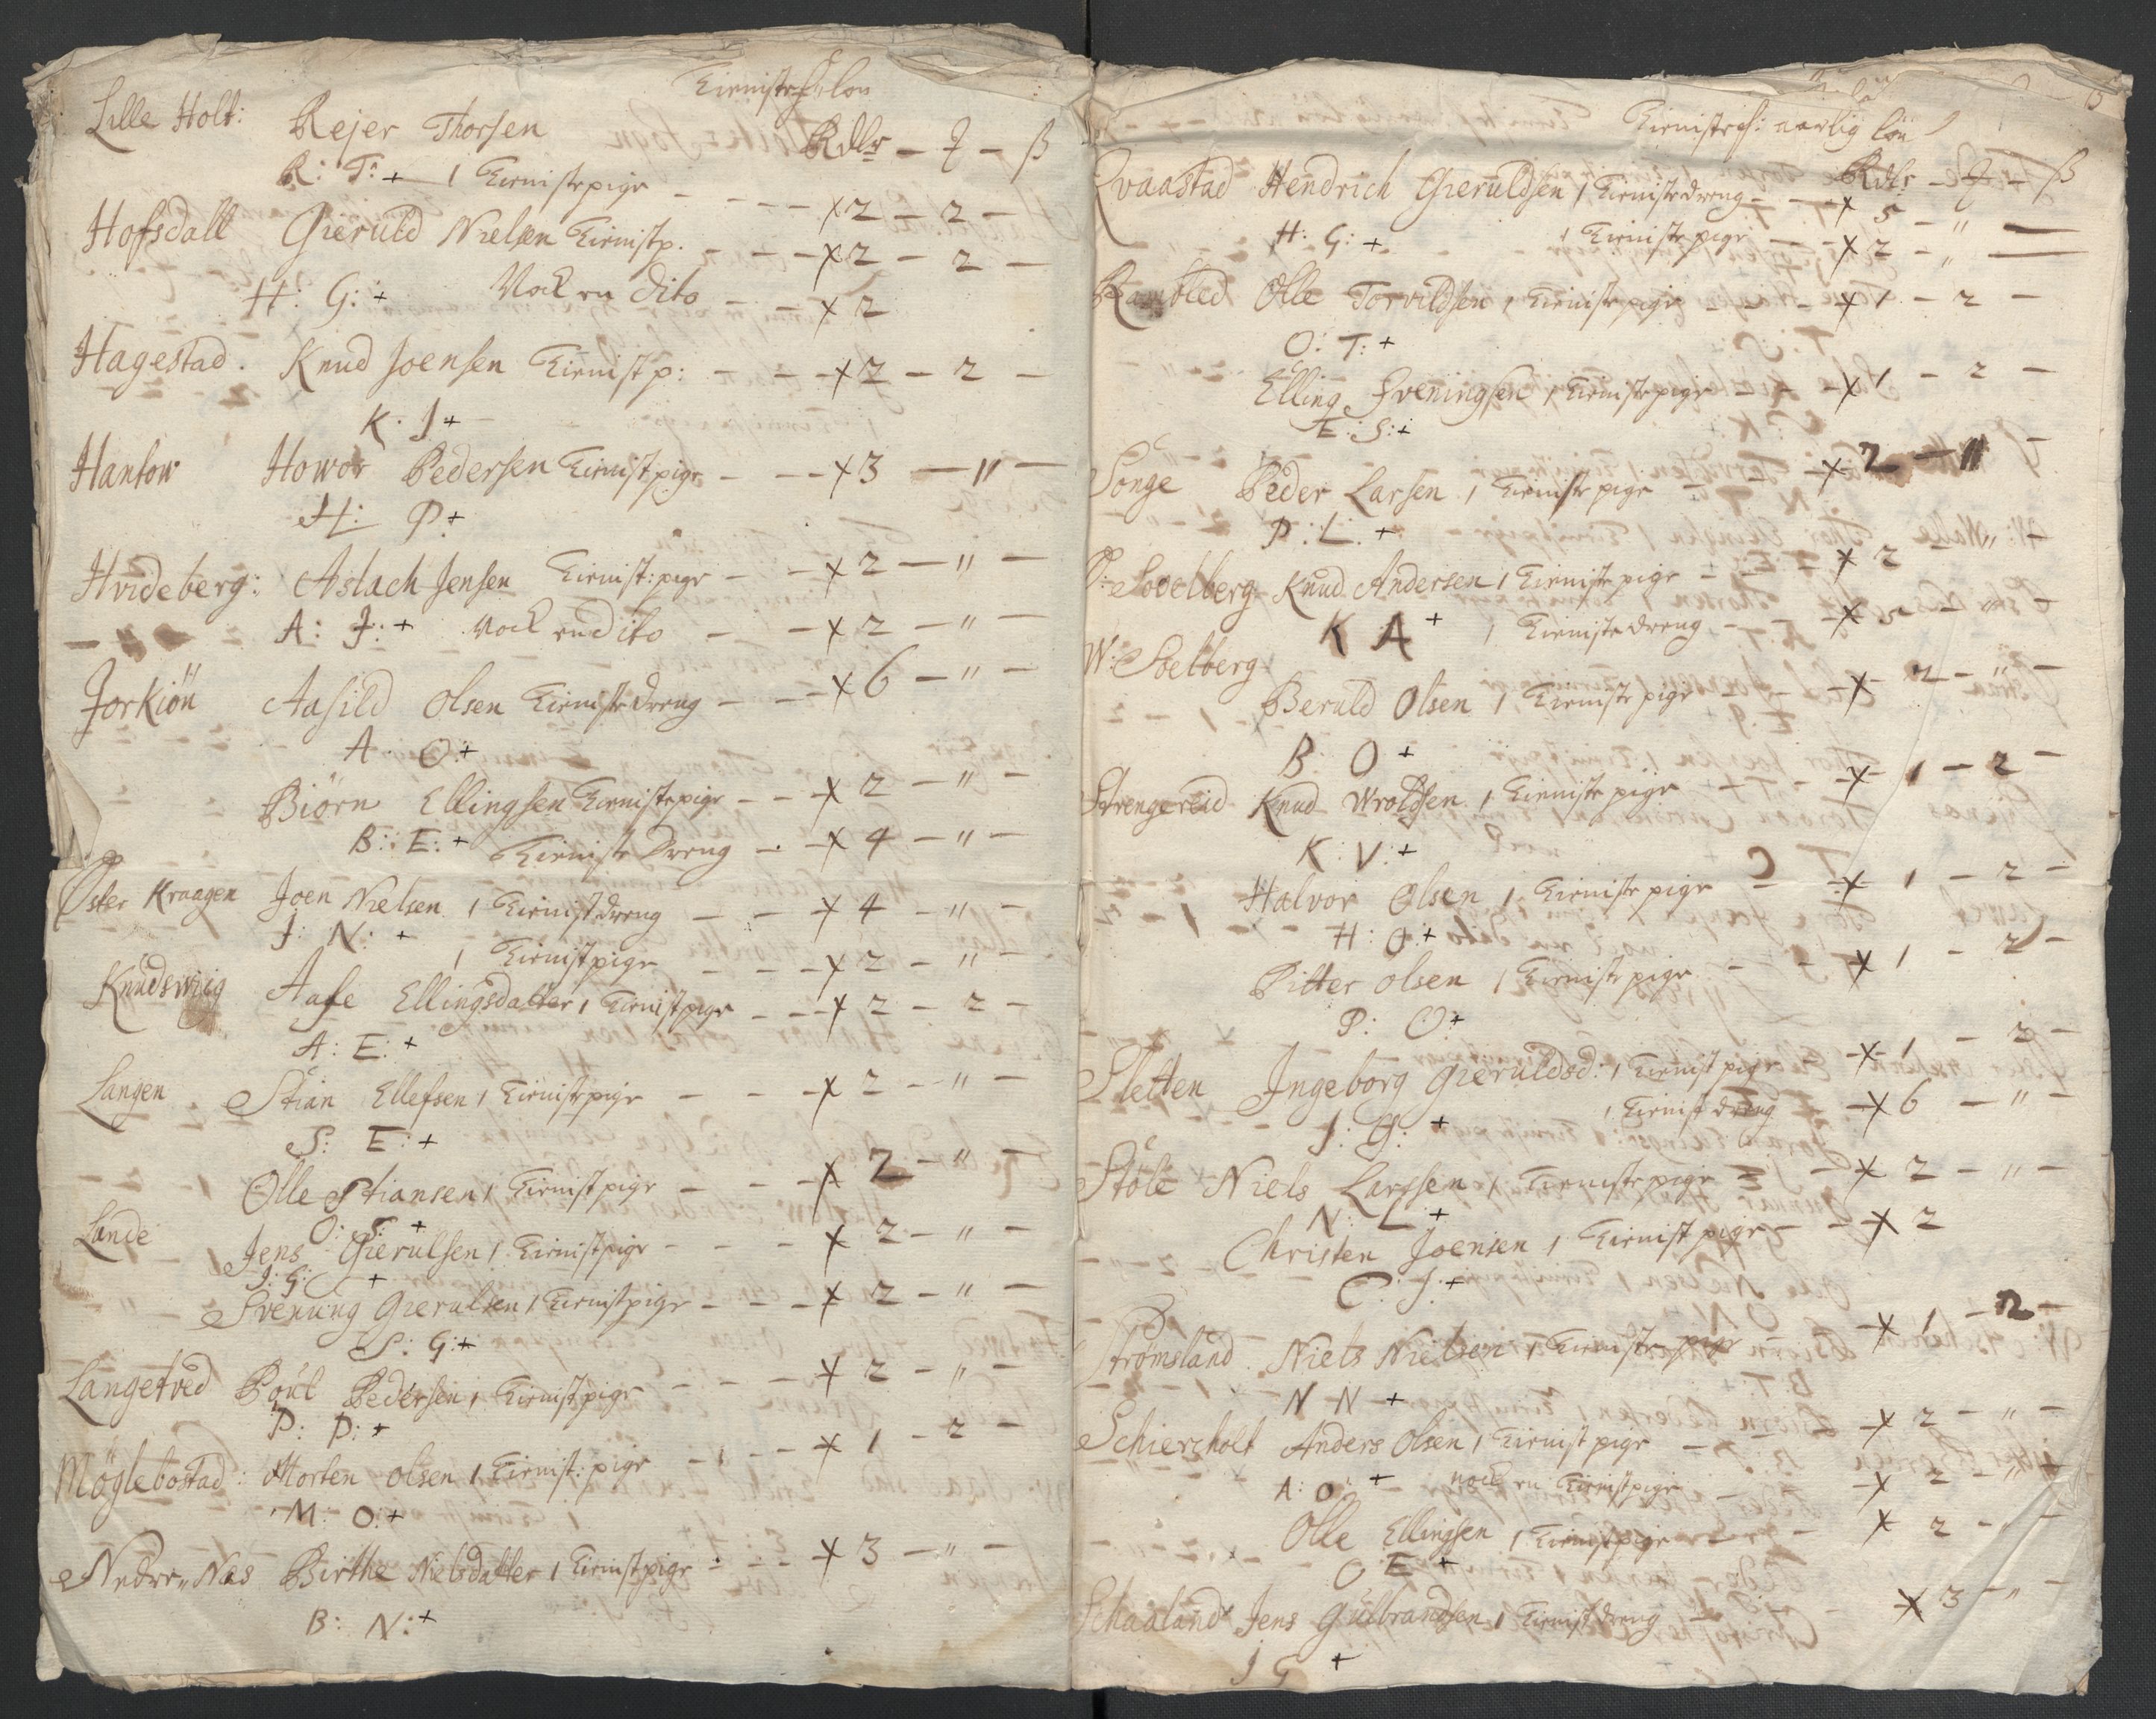 Tienistefs: løn
Lille Holt: Rejer Thorsen Rdlr – ꝣ – ß
R: T: + 1 Tienistepige – – – – x 2 – 2 –
Hofsdall Gieruld Nielsen Tienistp. – – – x 2 – 2 –
H: G: + Nock en dito – – x 2
Hagestad. Knud Joensen Tienistp: – – – x 2 – 2 –
K. J +
Hantow Howor Pedersen Tienistpige – – – x 3 – " –
H: P +
Hvideberg: Aslach Jensen Tienist:pige – – x 2 – " –
A: J: + Nock en dito – – x 2 – " –
Jorkiön Aasild Olsen Tienistedreng – – – x 6 – " –
A. O: +
Biörn Ellingsen Tienistepige – – – x 2 – " –
B: E: + Tieniste dreng – – x 4 – " –
Öster Kraagen Joen Nielsen 1 Tienistdreng – – – x 4 – " –
J: N: + 1 Tienistpige – – – x 2 – " –
Knudswiig Aase Ellingsdatter 1 Tienistpige – – – x 2 – 2 –
A: E: +
Langen Stian Ellefsen 1 Tienistepige – – – x 2 – " –
S: E: +
Olle Stiansen 1 Tienistpige – – – x 2 – " –
O: S: +
Lande Jens Gierulsen 1 Tienistpige – – – x 2 – " –
J: G: +
Svenung Gierulsen 1 Tienistpige – – – x 2 – " –
S: G: +
Langetved Poul Pedersen 1 Tienistpige – – – – x 2 – " –
P: P: +
Möglebostad: Morten Olsen 1 Tienist: pige – – – x 1 – 2 –
M: O: +
Nedre Næs Birthe Nielsdatter 1 Tienistpige – – – x 3 – " –
B: N: +
Tienistefs: aarlig løn
Rdlr – ꝣ – ß
Qvaastad Hendrich Gieruldsen 1 Tienistedreng – – x 5 – " –
H: G: + 1 Tienistepige – – x 2 – " –
Olle Torvildsen 1 Tienistepige – – – x 1 – 2 –
O: T: +
Elling Sveningsen 1 Tienistepige – – x 1 – 2 –
E: S: +
Songe Peder Larsen 1 Tieniste pige – – x 2 – " –
P: L: +
Ö: Soelberg Knud Andersen 1 Tieniste pige – – – x 2
K A + 1 Tienistedreng – – x 5 – " –
W: Soelberg
Beruld Olsen 1 Tieniste pige – – – x 2 – " –
B: O +
Strengereid Knud Wroldsen 1 Tieniste pige – – x 1 – 2 –
K: V: +
Halvor Olsen 1 Tieniste pige – – x 1 – 2 –
H: O: +
Pitter Olsen 1 Tieniste pige – – x 1 – 2 –
P: O: +
Sletten Ingeborg Gieruldsd: 1 Tienist pige – x 1 – 2 –
J: G: + 1 Tienist dreng – x 6 – " –
Stöle Niels Larssen 1 Tieniste pige – – x 2 – " –
N: L: +
Christen Joensen 1 Tienist pige – – x 2
C: J: +
Strømsland. Niels Nielsen 1 Tienistepige x 1 – 2 –
N N +
Schiercholt Anders Olsen 1 Tienist pige – x 2 – " –
A: O: + nock en Tienistpige – x 2 – " –
Olle Ellingsen 1 Tienistpige – x 2 – " –
O E +
Schaaland Jens Gulbrandsen 1 Tienistdreng – x 3 – " –
J G +